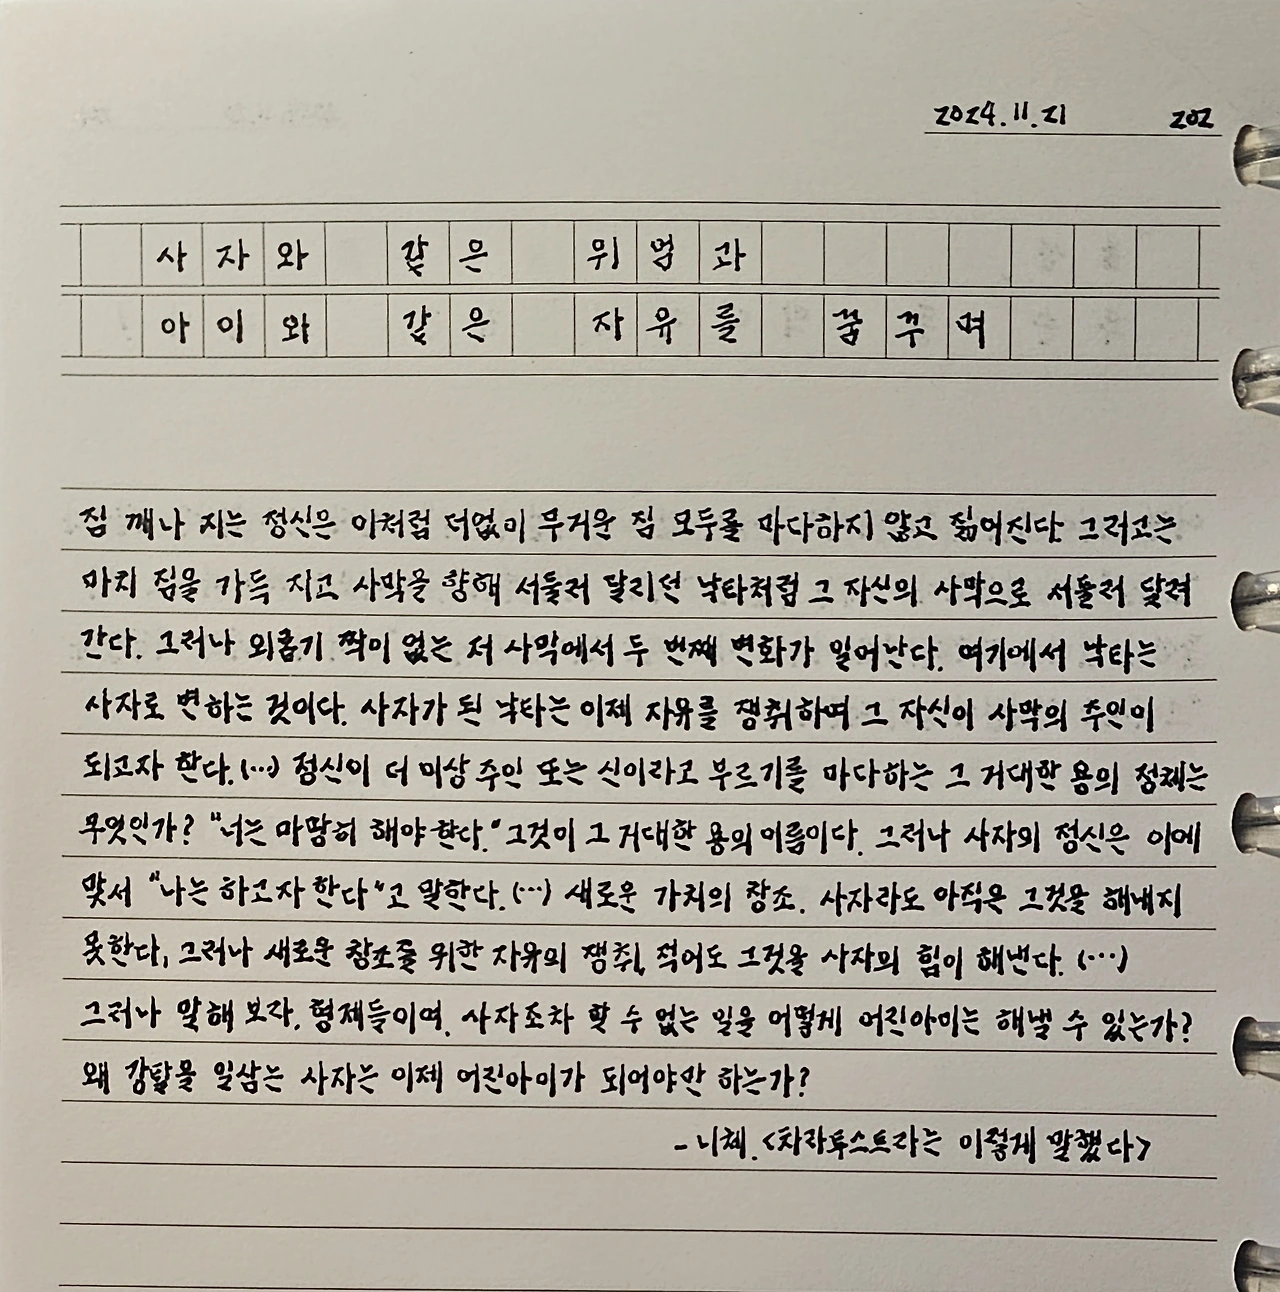 2024.11.21 202
사자와 같은 위엄과
아이와 같은 자유를 꿈꾸며
짐 깨나 지는 정신은 이처럼 더없이 무거운 짐 모두를 마다하지 않고 짊어진다. 그러고는
마치 짐을 가득 지고 사막을 향해 서둘러 달리던 낙타처럼 그 자신의 사막으로 서둘러 달려
간다. 그러나 외롭기 짝이 없는 저 사막에서 두 번째 변화가 일어난다. 여기에서 낙타는
사자로 변하는 것이다. 사자가 된 낙타는 이제 자유를 쟁취하며 그 자신이 사막의 주인이
되고자 한다. (…) 정신이 더 이상 주인 또는 신이라고 부르기를 마다하는 그 거대한 용의 정체는
무엇인가? "너는 마땅히 해야 한다." 그것이 그 거대한 용의 이름이다. 그러나 사자의 정신은 이에
맞서 "나는 하고자 한다"고 말한다. (…) 새로운 가치의 창조. 사자라도 아직은 그것을 해내지
못한다, 그러나 새로운 창조를 위한 자유의 쟁취, 적어도 그것을 사자의 힘이 해낸다. (…)
그러나 말해 보라, 형제들이여. 사자조차 할 수 없는 일을 어떻게 어린아이는 해낼 수 있는가?
왜 강탈을 일삼는 사자는 이제 어린아이가 되어야만 하는가?
- 니체. <차라투스트라는 이렇게 말했다>